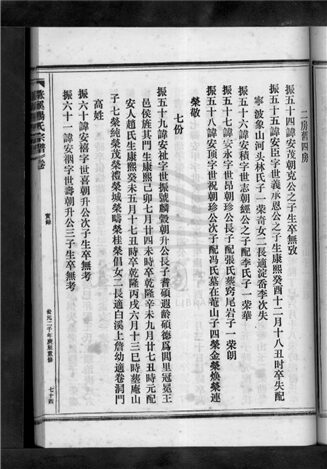 二房派四房
振五十四諱安茂朝克公之子生卒無攷
振五十五諱安臣字世義承恩公之子生康熙癸酉十二月十八丑时卒失配
寧波象山河头林氏子一荣奇女二長適淀畓李次失
振五十六諱安積字世志朝經公之子配李氏子一荣華
振五十七諱安永字世昂朝珍公長子配張氏墓窍尾岩子一荣朗
振五十八諱安顶字世祝朝珍公次子配冯氏墓在菴山子四榮金榮焕榮連
榮敬
七份
振五十九諱安祉字世振號麟穀朝升公長子耆碩遐龄碩德為閭里冠冕王
邑侯旌其門生康熙己卯七月廿四未時卒乾隆辛未九月廿七丑時元配
安人赵氏生康熙癸未五月十七丑時卒乾隆丙戌六月十三巳時墓庵山
子七榮純榮茂榮禮榮城榮疇榮桂榮倡女二長適白溪上詹幼適卷洞門
高姓
振六十諱安禧字世喜朝升公次子生卒無考
振六十一諱安裀字世壽朝升公三子生卒無考
楊氏宗譜
卷
公元二千年庚辰重修
七十四